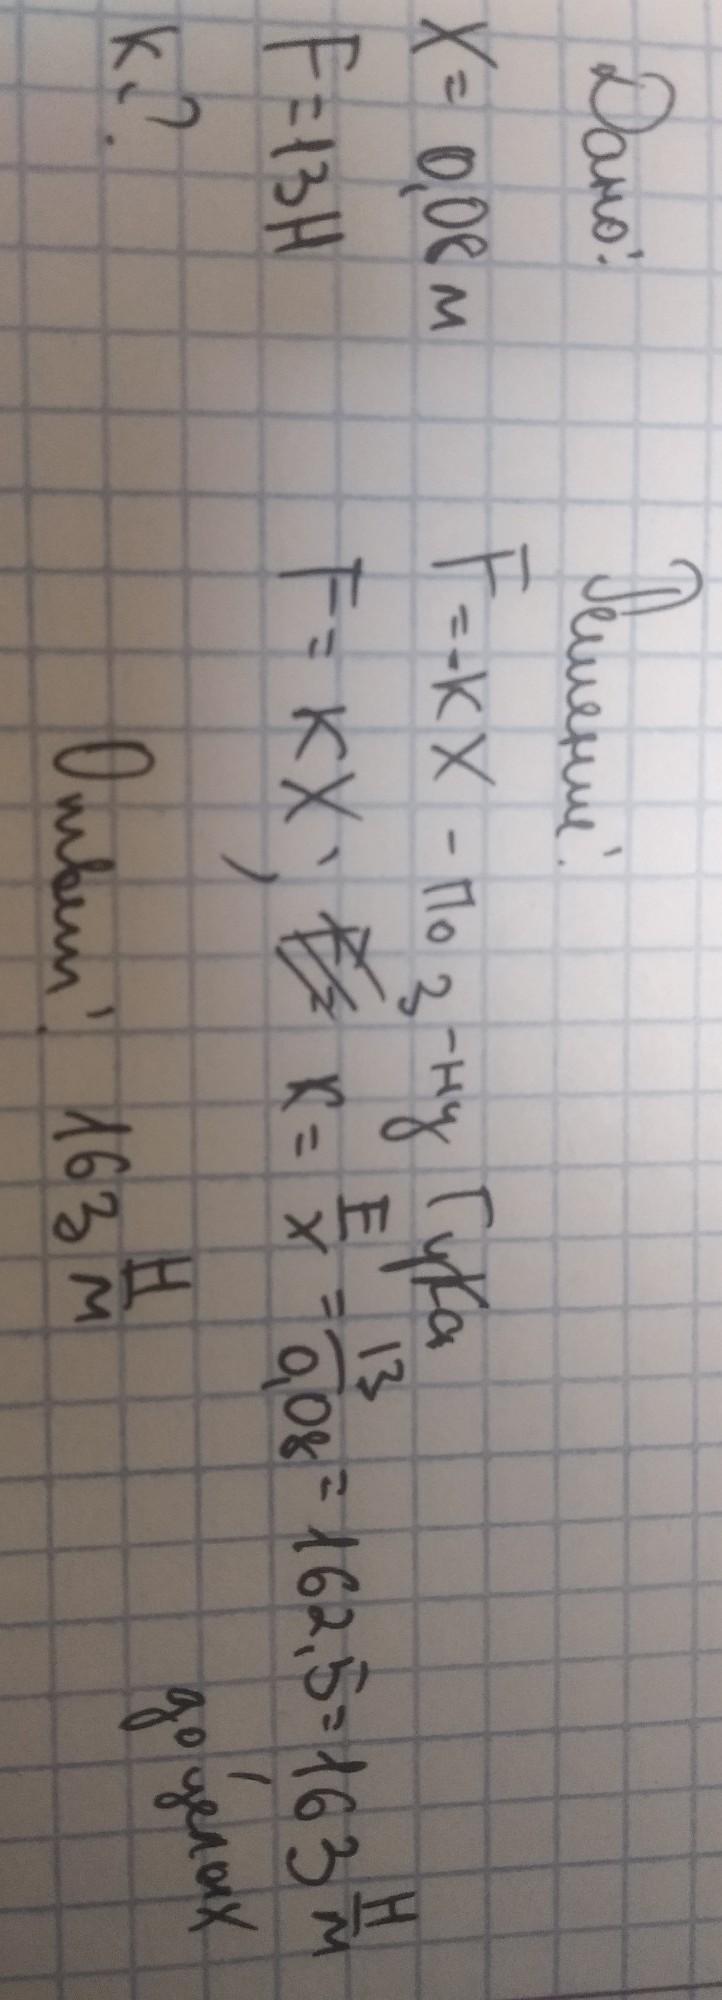 Дано:
X = 0,08 м
F = 13 Н
K - ?
Решение:
F = -KX - По з-ну Гука
F = KX, K = F/X = 13/0,08 = 162,5 = 163 Н/м
до целых
Ответ: 163 Н/м